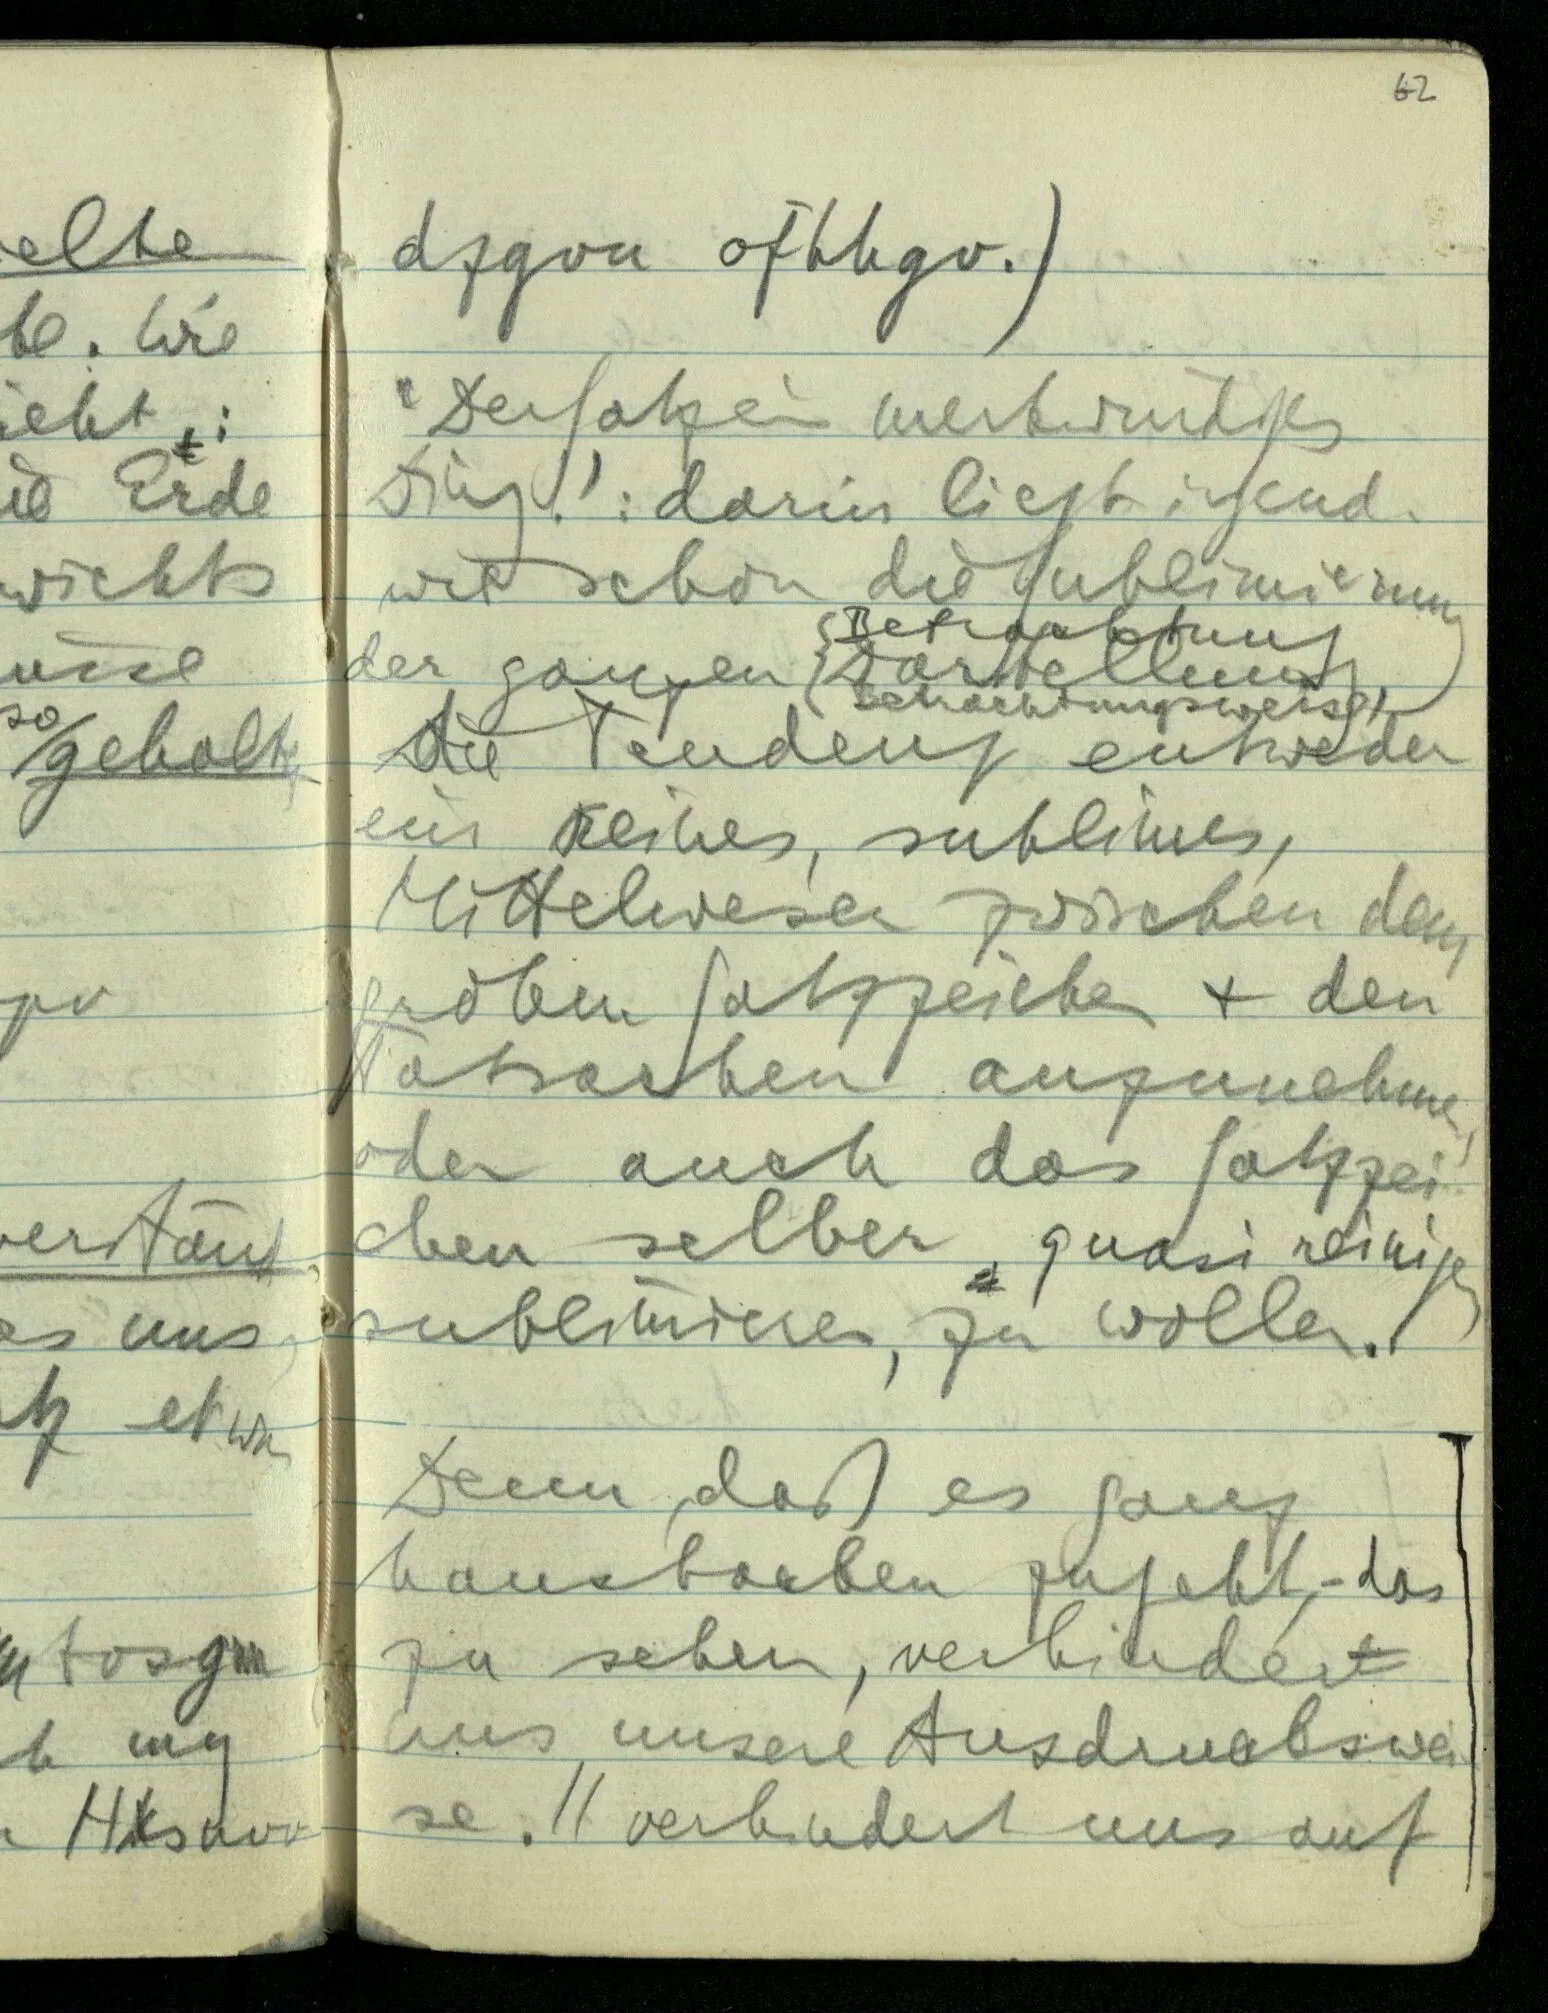 elte
be. Wie
ieht:
ie Erde
wichts
so
gehalt,
verständ
es uns
tz etwa
62
dzgvn ofhhgv.)
"Der Satz ein merkwürdiges
Ding!": darin liegt irgend-
wie schon die Sublimierung
der ganzen Darstellung
Betrachtung
Betrachtungsweise,
Die Tendenz entweder
ein reines, sublimes,
Mittelwesen zwischen dem
groben Satzzeichen + den
Tatsachen anzunehmen,
oder auch das Satzzei
chen selber, quasi reinigen
sublimieren, zu wollen.
Denn, daß es ganz
hausbacken zugeht, – das
zu sehen, verhindert
uns unsere Ausdruckswei
se. // verhindert uns auf